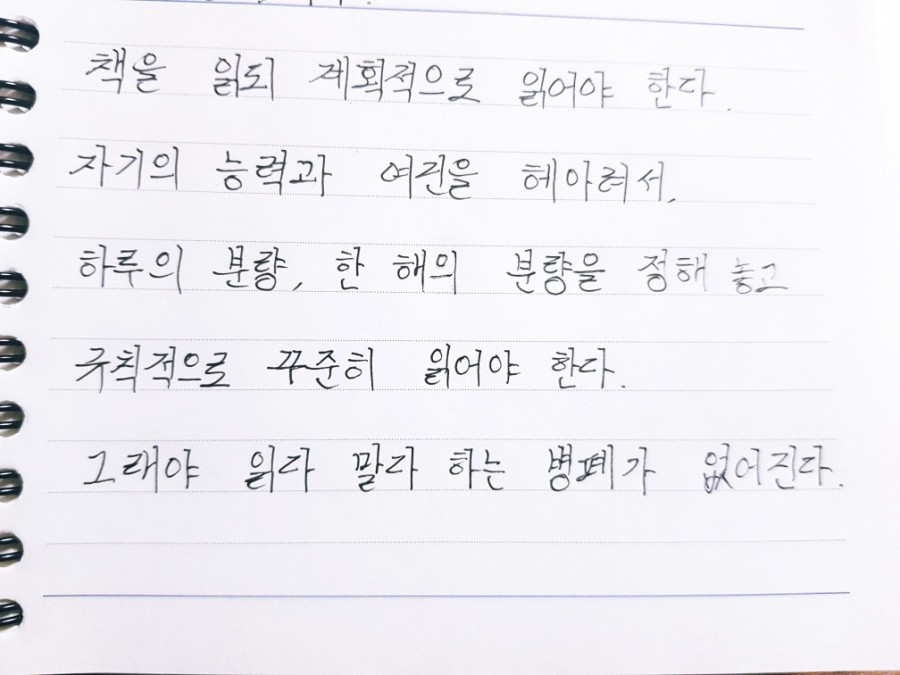 책을 읽되 계획적으로 읽어야 한다.
자기의 능력과 여건을 헤아려서,
하루의 분량, 한 해의 분량을 정해 놓고
규칙적으로 꾸준히 읽어야 한다.
그래야 읽다 말다 하는 병폐가 없어진다.